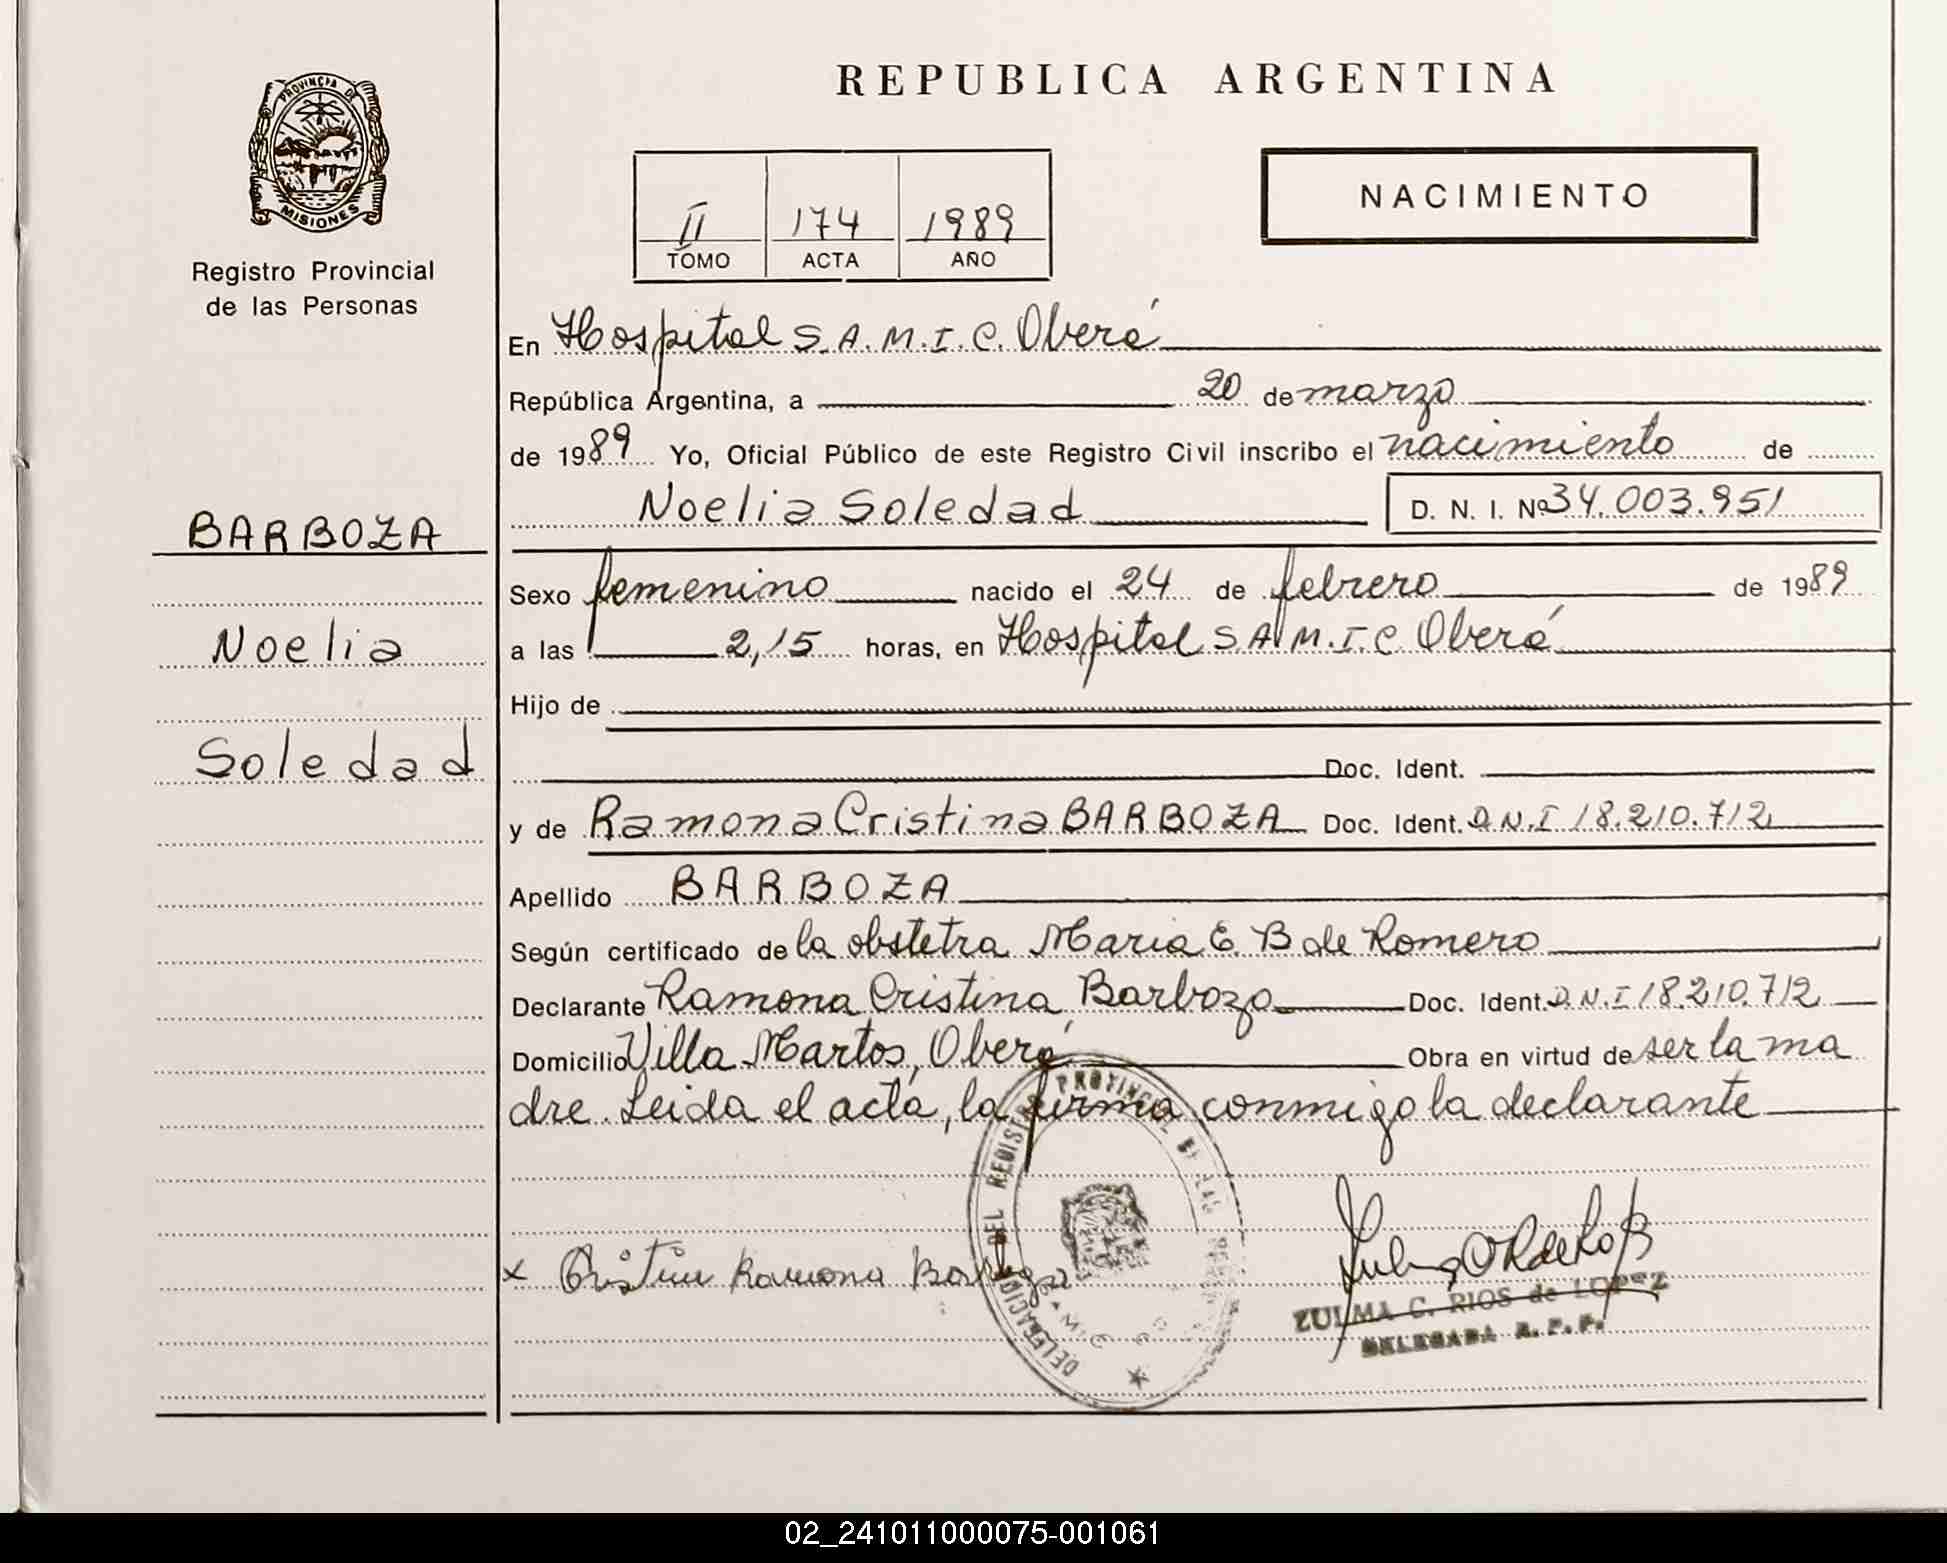 PROVINCIA DE
MISIONES
Registro Provincial
de las Personas
BARBOZA
Noelia
Soledad
REPUBLICA ARGENTINA
II 174 1989
TOMO ACTA AÑO
NACIMIENTO
En Hospital S.A.M.I.C. Oberá
República Argentina, a 20 de marzo
de 1989 Yo, Oficial Público de este Registro Civil inscribo el nacimiento de
Noelia Soledad D. N. I. Nº 34.003.951
Sexo femenino nacido el 24 de febrero de 1989
a las 2,15 horas, en Hospital S.A.M.I.C. Oberá
Hijo de
Doc. Ident.
y de Ramona Cristina BARBOZA Doc. Ident. D.N.I 18.210.712
Apellido BARBOZA
Según certificado de la obstetra Maria E. B de Romero
Declarante Ramona Cristina Barboza Doc. Ident. D.N.I 18.210.712
Domicilio Villa Martos, Oberá Obra en virtud de ser la ma
dre. Leida el acta, la firma conmigo la declarante
DELEGACION DEL REGISTRO PROVINCIAL DE LAS
x Cristina Ramona Barboza
ZULMA C. RIOS de LOPEZ
DELEGADA R. P. P.
02_241011000075-001061